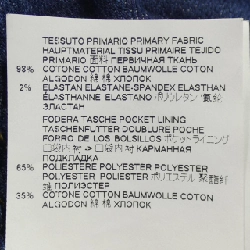 TESSUTO PRIMARIO PRIMARY FABRIC
HAUPTMATERIAL TISSU PRIMAIRE TEJIDO
PRIMARIO 面料 ПЕРВИЧНАЯ ТКАНЬ
98% COTONE COTTON BAUMWOLLE COTON
ALGODON 綿 棉 ХЛОПОК
2% ELASTAN ELASTANE-SPANDEX ELASTHAN
ÉLASTHANNE ELASTANO ポリウレタン 氨纶
ЭЛАСТАН
FODERA TASCHE POCKET LINING
TASCHENFUTTER DOUBLURE POCHE
FORRO DE LOS BOLSILLOS ポケットライニング
口袋内衬 КАРМАННАЯ
ПОДКЛАДКА
65% POLIESTERE POLYESTER POLYESTER
POLYESTER POLIESTER ポリエステル 聚酯纤
维 ПОЛИЭСТЕР
35% COTONE COTTON BAUMWOLLE COTON
ALGODON 綿 棉 ХЛОПОК